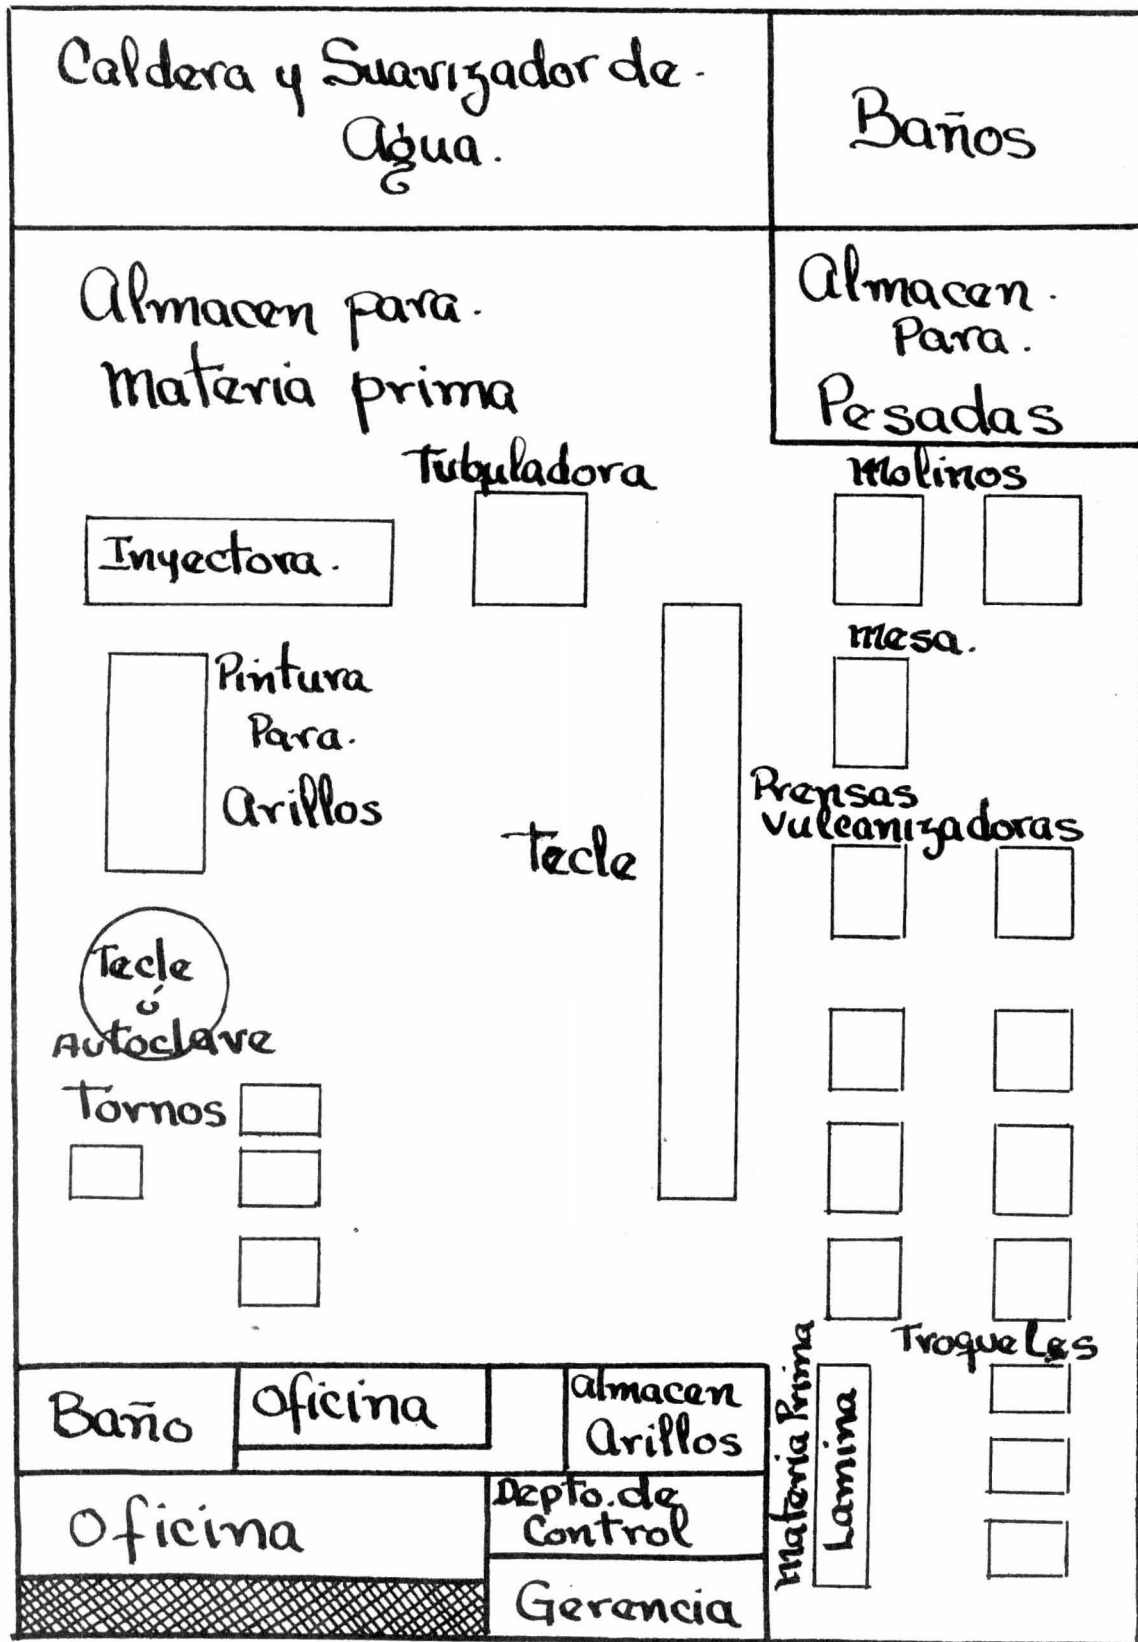 Caldera y Suavizador de.
Agua.
Baños
Almacen para.
materia prima
Almacen.
Para.
Pesadas
Tubuladora
Molinos
Inyectora.
mesa.
Pintura
Para.
Arillos
Prensas
Vulcanizadoras
Tecle
Tecle
ó
Autoclave
Tornos
Troqueles
Materia Prima
Lamina
Baño
Oficina
almacen
Arillos
Oficina
Depto. de
Control
Gerencia